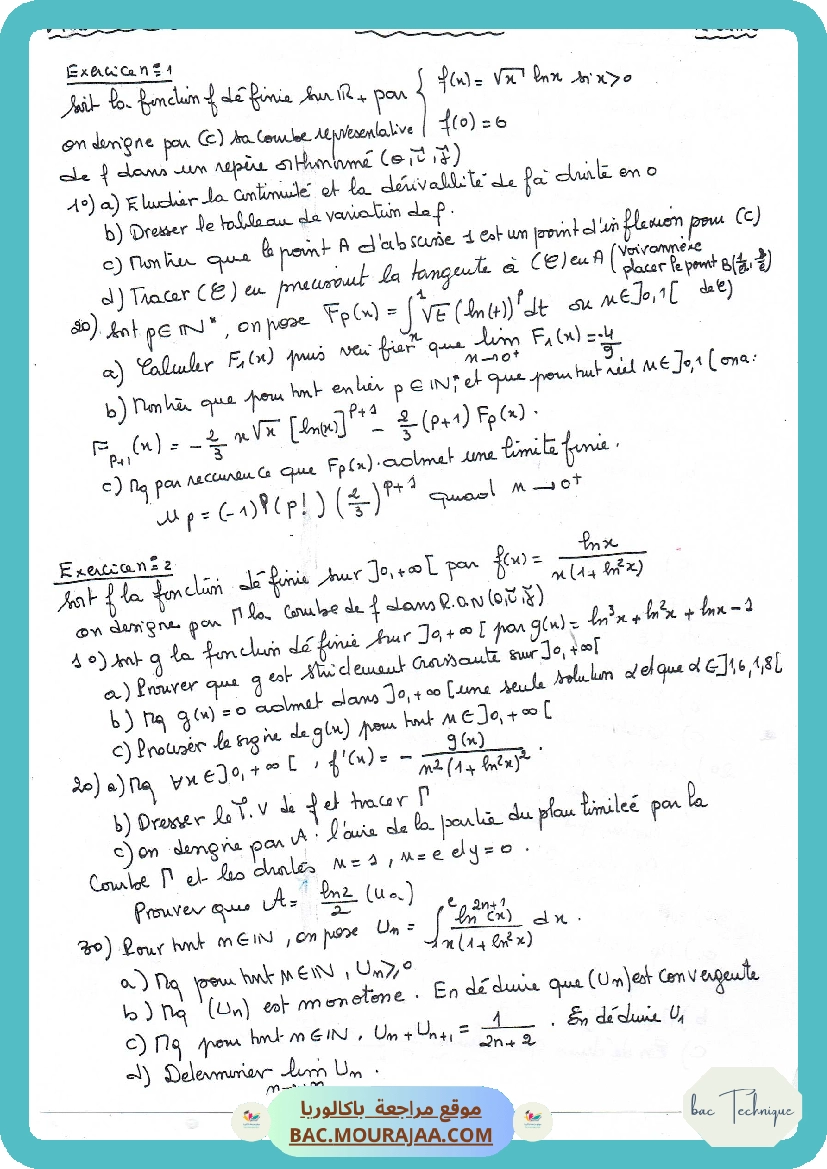 Exercice n=1
Soit la fonction f définie sur IR+ par { f(x) = √x lnx si x>0
f(0) = 0
on designe par (C) sa courbe representative
de f dans un repère orthonormé (o,i,j)
1°) a) Etudier la continuité et la dérivabilité de f à droite en 0
b) Dresser le tableau de variation de f.
c) Montrer que le point A d'abscisse 1 est un point d'inflexion pour (C)
d) Tracer (C) en precisant la tangente à (C) en A (
placer le point B
de C)
2°) Soit p∈IN*, on pose Fp(x) = ∫ₓ¹ √t (ln(t))^p dt où x∈]0,1[
a) Calculer F₁(x) puis verifier que lim x→0⁺ F₁(x) = -4/9
b) Montrer que pour tout entier p∈IN*, et que pour tout réel x∈]0,1[ on a:
F_{p+1}(x) = -2/3 x√x [ln(x)]^{p+1} - 2/3 (p+1) Fp(x).
c) Mq par reccurence que Fp(x) admet une limite finie.
Up = (-1)^p (p!) (2/3)^{p+1} quand x→0⁺
Exercice n=2
Soit f la fonction définie sur ]0,+∞[ par f(x) = lnx / x(1+ln²x)
on designe par Γ la courbe de f dans R.O.N (O,i,j)
1°) Soit g la fonction définie sur ]0,+∞[ par g(x) = ln³x + ln²x + lnx - 1
a) Prouver que g est strictement croissante sur ]0,+∞[
b) Mq g(x) = 0 admet dans ]0,+∞[ une seule solution α et que α∈]1,6,1,8[
c) Preciser le signe de g(x) pour tout x∈]0,+∞[
2°) a) Mq ∀x∈]0,+∞[, f'(x) = - g(x) / x²(1+ln²x)².
b) Dresser le T.V de f et tracer Γ
c) on designe par A : l'aire de la partie du plan limiteé par la
Courbe Γ et les droites x=1, x=e et y=0.
Prouver que A = ln2/2 (u.a)
3°) Pour tout n∈IN, on pose Un = ∫₁ᵉ ln^{2n+1}(x) / x(1+ln²x) dx.
a) Mq pour tout n∈IN, Un≥0
b) Mq (Un) est monotone. En déduire que (Un) est convergente
c) Mq pour tout n∈IN, Un + Un+1 = 1/2n+2. En déduire U₁
d) Determiner lim Un.
n→+∞
bac Technique
موقع مراجعة باكالوريا
BAC.MOURAJAA.COM